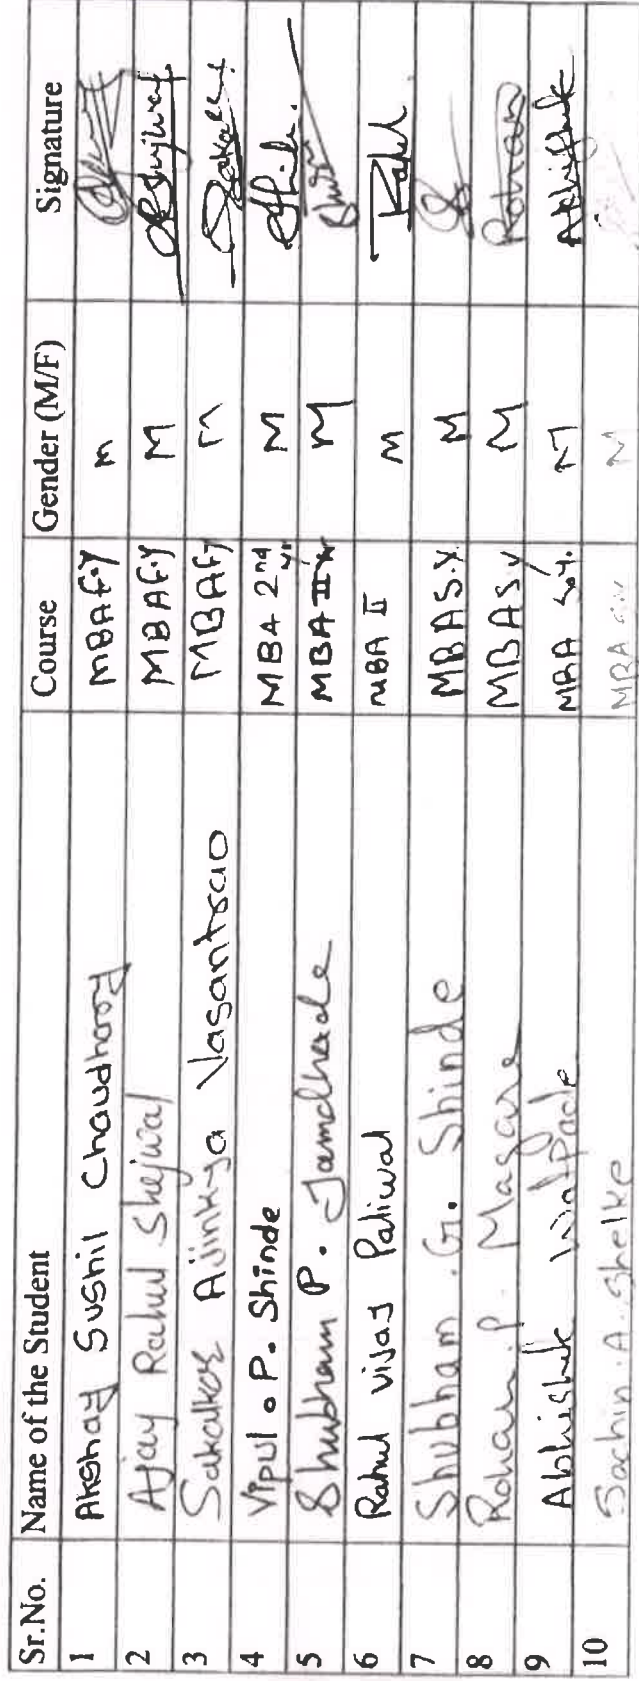 Sr.No. Name of the Student Course Gender (M/F) Signature
1 Akshay Sushil Chaudhary MBA F.Y m
2 Ajay Rahul Shejwal MBA F.Y M
3 Sakalkar Ajinkya Vasantrao MBA FY M
4 Vipul . P. Shinde MBA 2nd yr M
5 Shubham P. Jamdhade MBA II yr M
6 Rahul Vijay Paliwal MBA II M
7 Shubham . G. Shinde MBA S.Y. M
8 Rohan . P. Magare MBA S.Y M Rohan
9 Abhishek MBA S.Y. M Abhishek
10 Sachin . A . Shelke MBA M